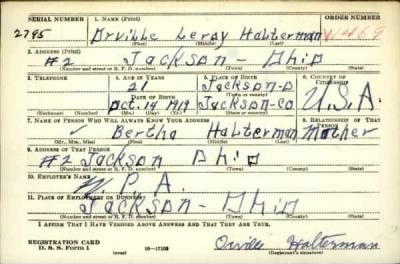 SERIAL NUMBER 1. NAME (Print) ORDER NUMBER
2795 Orville Leroy Halterman
(First) (Middle) (Last)
2. ADDRESS (Print)
#2 Jackson - Ohio
(Number and street or R. F. D. number) (Town) (County) (State)
3. TELEPHONE 4. AGE IN YEARS 5. PLACE OF BIRTH 6. COUNTRY OF CITIZENSHIP
21 Jackson-O
DATE OF BIRTH (Town or county)
Oct. 14 1919 Jackson-Co U.S.A.
(Exchange) (Number) (Mo.) (Day) (Yr.) (State or country)
7. NAME OF PERSON WHO WILL ALWAYS KNOW YOUR ADDRESS 8. RELATIONSHIP OF THAT PERSON
Bertha Halterman Mother
(Mr., Mrs., Miss) (First) (Middle) (Last)
9. ADDRESS OF THAT PERSON
#2 Jackson Ohio
(Number and street or R. F. D. number) (Town) (County) (State)
10. EMPLOYER'S NAME
W.P.A.
11. PLACE OF EMPLOYMENT OR BUSINESS
Jackson - Ohio
(Number and street or R. F. D. number) (Town) (County) (State)
I AFFIRM THAT I HAVE VERIFIED ABOVE ANSWERS AND THAT THEY ARE TRUE.
REGISTRATION CARD
D. S. S. Form 1 (over) 16-17105 Orville Halterman